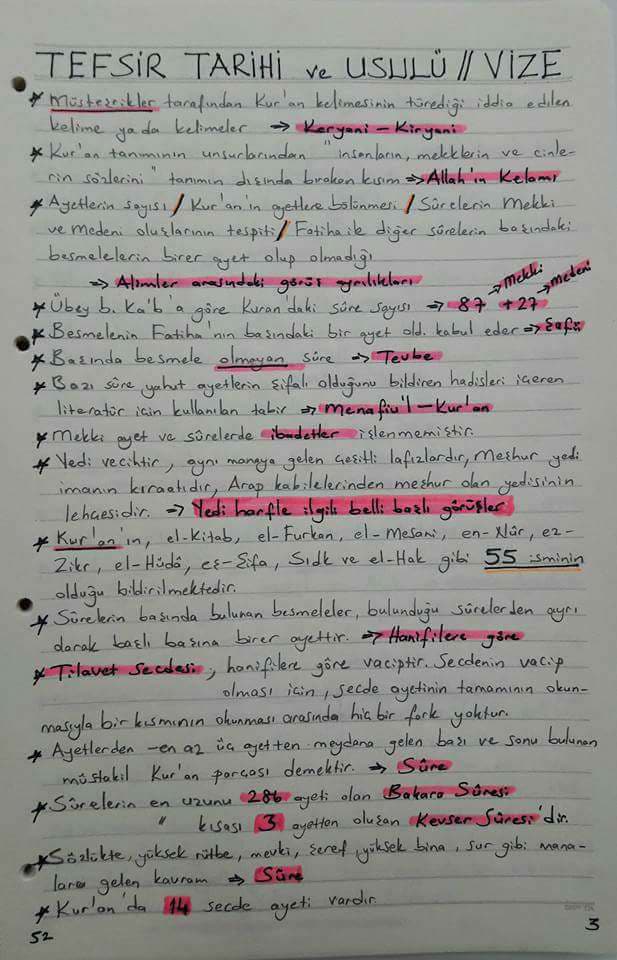 TEFSİR TARİHİ ve USULÜ // VİZE
* Müsteşrikler tarafından Kur'an kelimesinin türediği iddia edilen
kelime ya da kelimeler ⇒ Keryani - Kiryani
* Kur'an tanımının unsurlarından "insanların, meleklerin ve cinle-
rin sözlerini" tanımın dışında bırakan kısım ⇒ Allah'ın Kelamı
* Ayetlerin sayısı / Kur'an'ın ayetlere bölünmesi / Sûrelerin Mekki
ve Medeni oluşlarının tespiti / Fatiha ile diğer sûrelerin başındaki
besmelelerin birer ayet olup olmadığı
⇒ Alimler arasındaki görüş ayrılıkları
* Übey b. Ka'b'a göre Kuran'daki sûre sayısı → 87 → Mekki + 27 → Medeni
* Besmelenin Fatiha'nın başındaki bir ayet old. kabul eder ⇒ Şafii
* Başında besmele olmayan sûre ⇒ Tevbe
* Bazı sûre yahut ayetlerin şifalı olduğunu bildiren hadisleri içeren
literatür için kullanılan tabir ⇒ Menafiu'l-Kur'an
* Mekki ayet ve sûrelerde ibadetler işlenmemiştir.
* Yedi vecihtir, aynı manaya gelen çeşitli lafızlardır, Meşhur yedi
imanın kıraatıdır, Arap kabilelerinden meşhur olan yedisinin
lehçesidir. ⇒ Yedi harfle ilgili belli başlı görüşler
* Kur'an'ın, el-Kitab, el-Furkan, el-Mesani, en-Nûr, ez-
Zikr, el-Hüdâ, eş-Şifa, Sıdk ve el-Hak gibi 55 isminin
olduğu bildirilmektedir.
* Sûrelerin başında bulunan besmeleler, bulunduğu sûrelerden ayrı
olarak başlı başına birer ayettir. ⇒ Hanifilere göre
* Tilavet Secdesi; hanifilere göre vaciptir. Secdenin vacip
olması için, secde ayetinin tamamının okun-
masıyla bir kısmının okunması arasında hiçbir fark yoktur.
* Ayetlerden -en az üç ayetten meydana gelen başı ve sonu bulunan
müstakil Kur'an parçası demektir. ⇒ Sûre
* Sûrelerin en uzunu 286 ayeti olan Bakara Sûresi
" kısası 3 ayetten oluşan Kevser Sûresi'dir.
* Sözlükte, yüksek rütbe, mevki, şeref, yüksek bina, sur gibi mana-
lara gelen kavram ⇒ Sûre
* Kur'an'da 14 secde ayeti vardır.
52
3